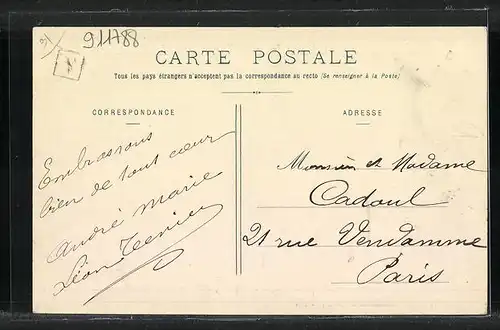 911788
CARTE POSTALE
Tous les pays étrangers n'acceptent pas la correspondance au recto (Se renseigner à la Poste)
CORRESPONDANCE
Embrassons
bien de tout cœur
André Marie
Léon
ADRESSE
Monsieur et Madame
Cadoul
21 rue Vendamme
Paris